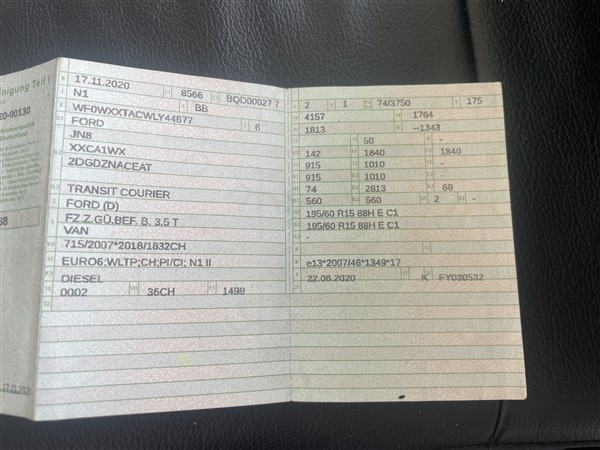 inigung Teil I
20-00130
Bundesrepublik
Deutschland
17.11.2020
17.11.2020 8566 BQD00027 7
N1 BB
WF0WXXTACWLY44677 6
FORD
JN8
XXCA1WX
2DGDZNACEAT
TRANSIT COURIER
FORD (D)
FZ.Z.GÜ.BEF. B. 3,5 T
VAN
715/2007*2018/1832CH
EURO6;WLTP;CH;PI/CI; N1 II
DIESEL
0002 36CH 1499
2 1 74/3750 175
4157 1764
1813 --1343
50 -
142 1840 1840
915 1010 -
915 1010 -
74 2813 69
560 560 2 -
195/60 R15 88H E C1
195/60 R15 88H E C1
-
e13*2007/46*1349*17
22.06.2020 K FY030532